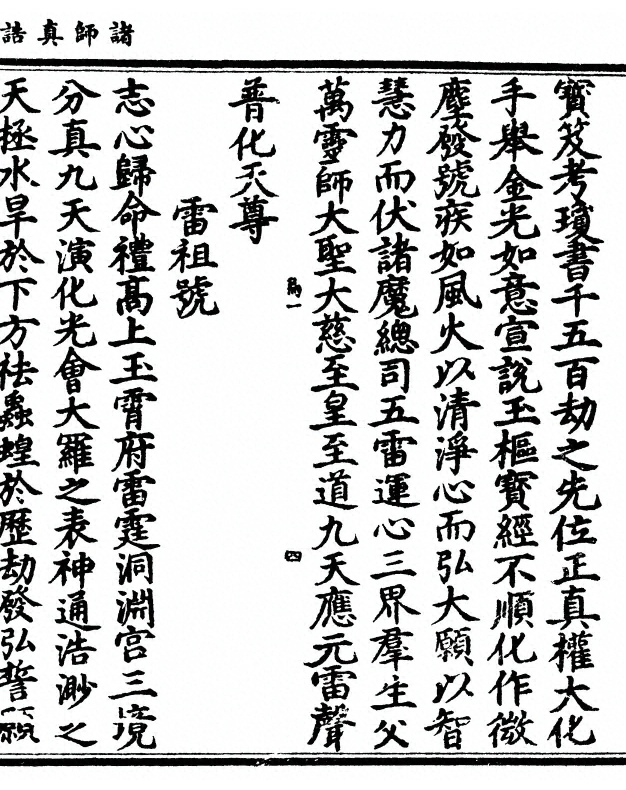 諸師真誥
寶笈考瓊書千五百劫之先位正真權大化
手舉金光如意宣說玉樞寶經不順化作微
塵發號疾如風火以清淨心而弘大願以智
慧力而伏諸魔總司五雷運心三界羣生父
萬靈師大聖大慈至皇至道九天應元雷聲
四
普化天尊
雷祖號
志心歸命禮高上玉霄府雷霆洞淵宮三境
分真九天演化光會大羅之表神通浩渺之
天拯水旱於下方祛蟲蝗於歷劫發弘誓願